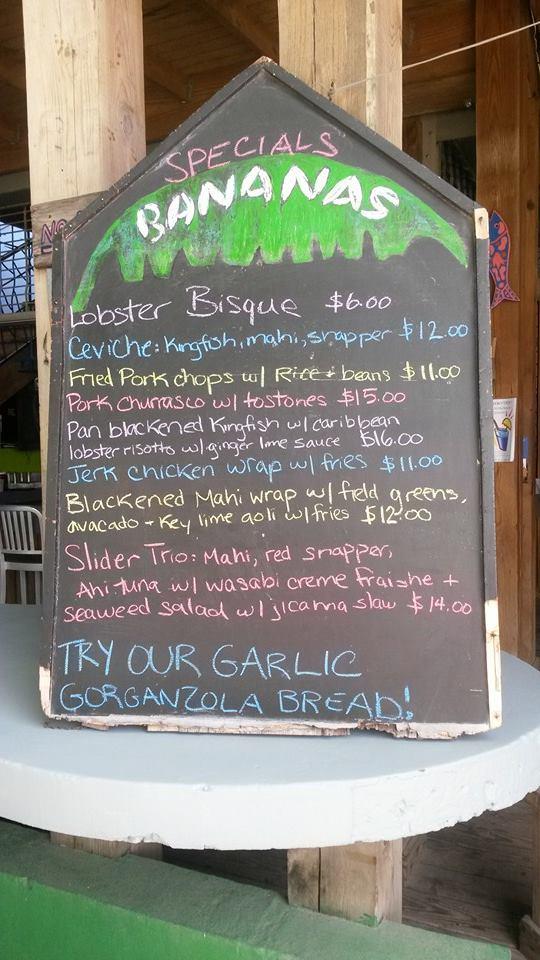 SPECIALS
BANANAS
Lobster Bisque $6.00
Ceviche: Kingfish, mahi, snapper $12.00
Fried Pork chops w/ Rice + beans $11.00
Pork Churrasco w/ tostones $15.00
Pan blackened Kingfish w/ caribbean
lobster risotto w/ ginger lime sauce $16.00
Jerk chicken wrap w/ fries $11.00
Blackened Mahi wrap w/ field greens,
avacado + Key lime aoli w/ fries $12.00
Slider Trio: Mahi, red snapper,
Ahi tuna w/ wasabi creme fraishe +
seaweed salad w/ jicama slaw $14.00
TRY OUR GARLIC
GORGANZOLA BREAD!
NO